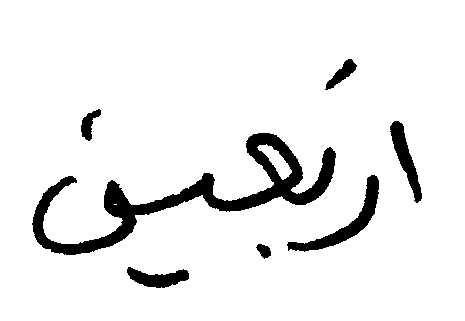 اربَعين